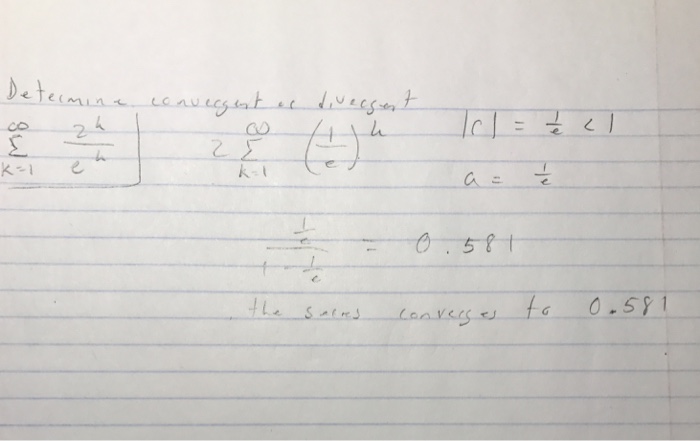 Determine convergent or divergent
∞ Σ k=1 2^k / e^k    2 ∞ Σ k=1 (1/e)^k    |r| = 1/e < 1
a = 1/e
(1/e) / (1 - 1/e) = 0.581
the series converges to 0.581